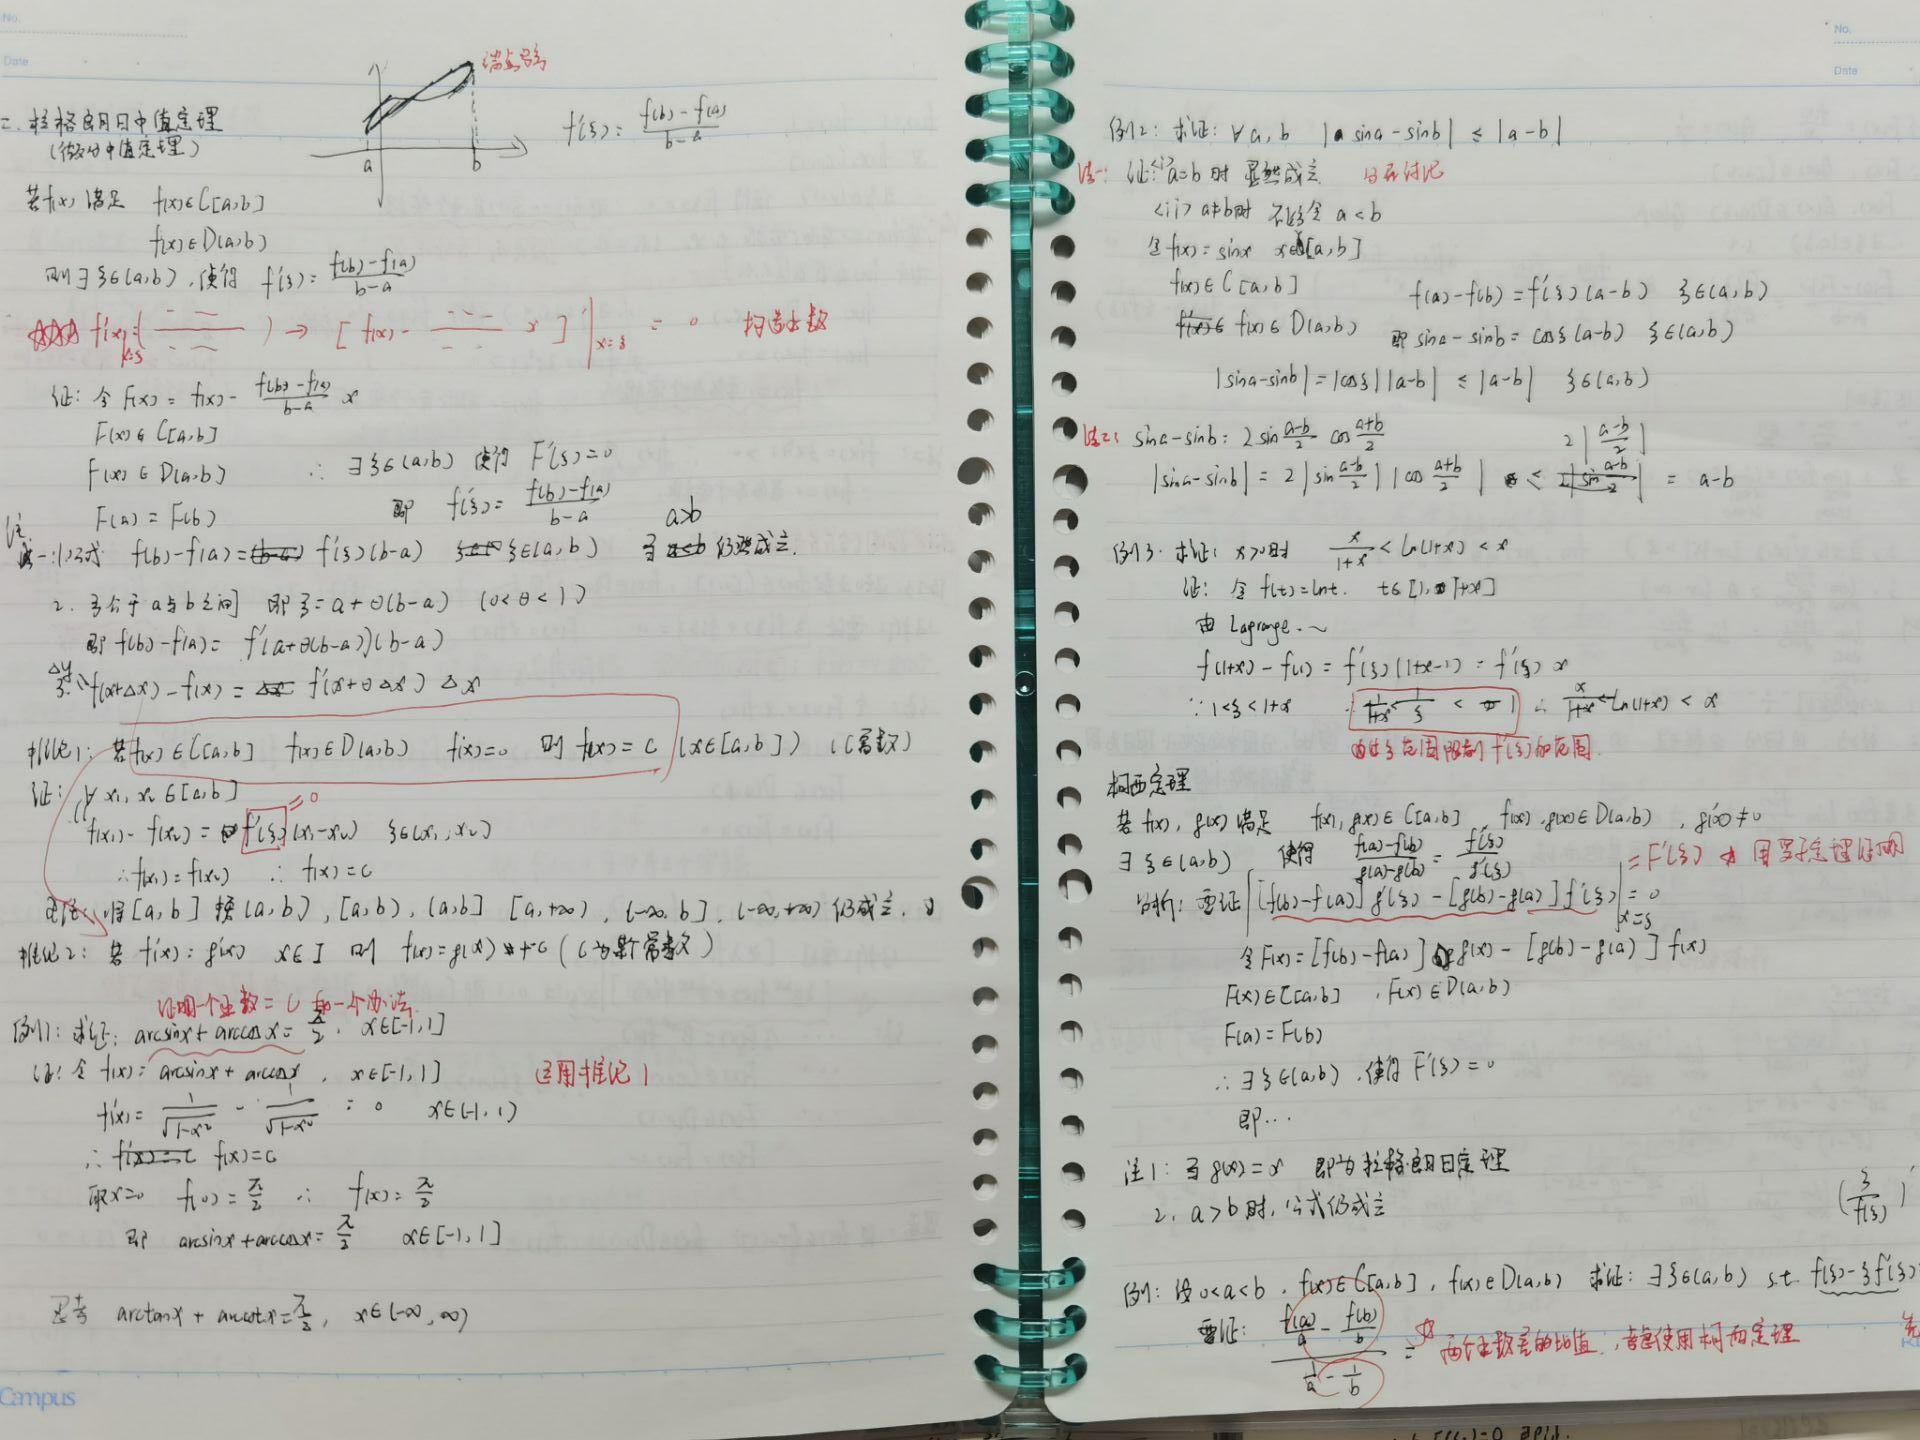 No.
Date
二. 拉格朗日中值定理
(微分中值定理)
a b
f'(ξ) = (f(b)-f(a))/(b-a)
若f(x) 满足 f(x)∈C[a,b]
f(x)∈D(a,b)
则∃ξ∈(a,b), 使得 f'(ξ) = (f(b)-f(a))/(b-a)
f'(x) x=ξ ( ) → [f(x) - x]|x=ξ = 0 构造函数
证: 令 F(x) = f(x) - (f(b)-f(a))/(b-a) x
F(x)∈C[a,b]
F(x)∈D(a,b) ∴ ∃ξ∈(a,b) 使得 F'(ξ)=0
F(a) = F(b) 即 f'(ξ) = (f(b)-f(a))/(b-a)
注: 公式 f(b)-f(a) = f'(ξ)(b-a) ξ∈(a,b) 当 a>b 仍然成立.
2. ξ介于a与b之间 即 ξ = a+θ(b-a) (0<θ<1)
即 f(b)-f(a) = f'(a+θ(b-a))(b-a)
3. Δy f(x+Δx)-f(x) = f'(x+θΔx) Δx
推论1: 若f(x)∈C[a,b] f(x)∈D(a,b) f'(x)=0 则 f(x)=C (x∈[a,b]) (C常数)
证: ∀ x₁, x₂ ∈[a,b]
f(x₁) - f(x₂) = f'(ξ)(x₁-x₂) ξ∈(x₁, x₂) =0
∴f(x₁)=f(x₂) ∴ f(x)=C
将[a,b] 换(a,b), [a,b), (a,b] [a,+∞), (-∞,b], (-∞,+∞) 仍成立.
推论2: 若 f'(x)=g'(x) x∈I 则 f(x)=g(x)+C (C为某常数)
证明一个函数=C 的一个办法
例1: 求证: arcsinx + arccosx = π/2, x∈[-1,1]
证: 令 f(x) = arcsinx + arccosx, x∈[-1,1] 运用推论1
f'(x) = 1/√(1-x²) - 1/√(1-x²) = 0 x∈(-1,1)
∴ f(x)=C
取x=0 f(0) = π/2 ∴ f(x) = π/2
即 arcsinx+arccosx = π/2 x∈[-1,1]
思考 arctanx + arccotx = π/2, x∈(-∞,∞)
Campus
No.
Date
例2: 求证: ∀a,b |sina-sinb| ≤ |a-b|
法一: 证: <i> a=b 时 显然成立 分开讨论
<ii> a≠b时 不妨令 a<b
令 f(x) = sinx x∈[a,b]
f(x)∈C[a,b] f(a)-f(b) = f'(ξ)(a-b) ξ∈(a,b)
f(x)∈D(a,b) 即 sina-sinb = cosξ(a-b) ξ∈(a,b)
|sina-sinb| = |cosξ||a-b| ≤ |a-b| ξ∈(a,b)
法2: sina-sinb = 2sin (a-b)/2 cos (a+b)/2 2|(a-b)/2|
|sina-sinb| = 2|sin (a-b)/2| |cos (a+b)/2| ≤ = a-b
例3. 求证: x>0时 x/(1+x) < ln(1+x) < x
证: 令 f(t)=lnt. t∈[1, 1+x]
由 Lagrange. ~
f(1+x)-f(1) = f'(ξ)(1+x-1) = f'(ξ) x
∵1<ξ<1+x ∴ 1/(1+x) < 1/ξ < 1 ∴ x/(1+x) < ln(1+x) < x
由ξ范围限制 f'(ξ)的范围.
柯西定理
若 f(x), g(x) 满足 f(x),g(x)∈C[a,b] f(x),g(x)∈D(a,b), g'(x)≠0
∃ξ∈(a,b) 使得 (f(a)-f(b))/(g(a)-g(b)) = f'(ξ)/g'(ξ) = F'(ξ) 用罗尔定理证明
分析: 要证 [f(b)-f(a)]g'(ξ) - [g(b)-g(a)]f'(ξ)|x=ξ = 0
令F(x) = [f(b)-f(a)]g(x) - [g(b)-g(a)]f(x)
F(x)∈C[a,b], F(x)∈D(a,b)
F(a)=F(b)
∴ ∃ξ∈(a,b), 使得 F'(ξ)=0
即…
注1: 当 g(x)=x 即为拉格朗日定理
2. a>b时, 公式仍成立
(ξ/f(ξ))'
例: 设 0<a<b, f(x)∈C[a,b], f(x)∈D(a,b) 求证: ∃ξ∈(a,b) s.t. f(ξ)-ξf'(ξ)
要证: (f(a)/a - f(b)/b)/(1/a - 1/b) = 两个函数差的比值, 考虑使用柯西定理